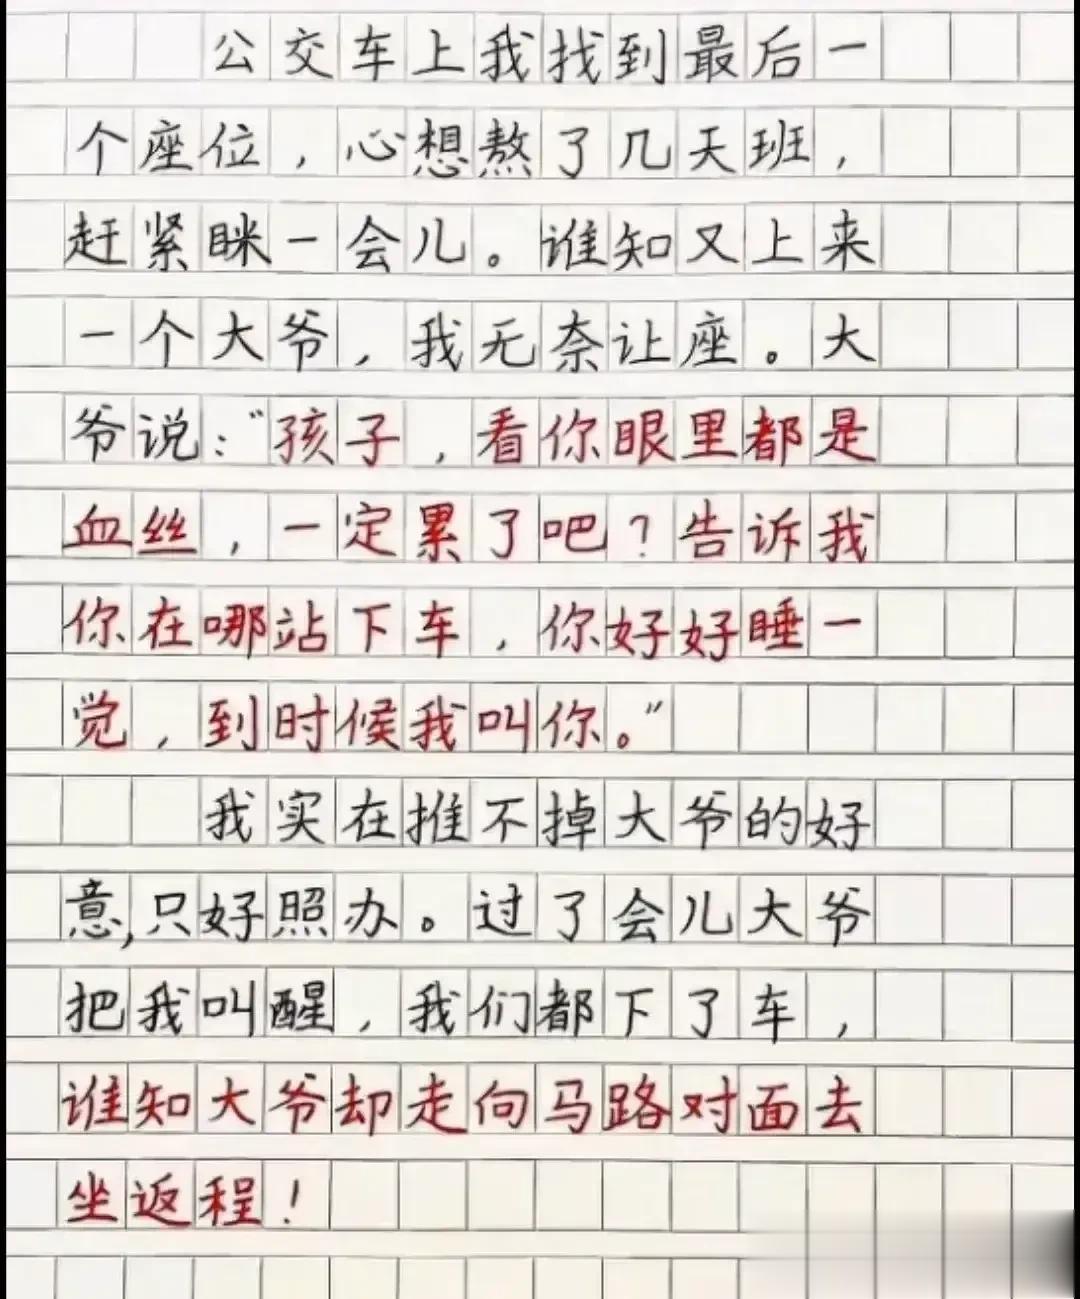 公交车上我找到最后一
个座位，心想熬了几天班，
赶紧眯一会儿。谁知又上来
一个大爷，我无奈让座。大
爷说：“孩子，看你眼里都是
血丝，一定累了吧？告诉我
你在哪站下车，你好好睡一
觉，到时候我叫你。”
我实在推不掉大爷的好
意，只好照办。过了会儿大爷
把我叫醒，我们都下了车，
谁知大爷却走向马路对面去
坐返程！